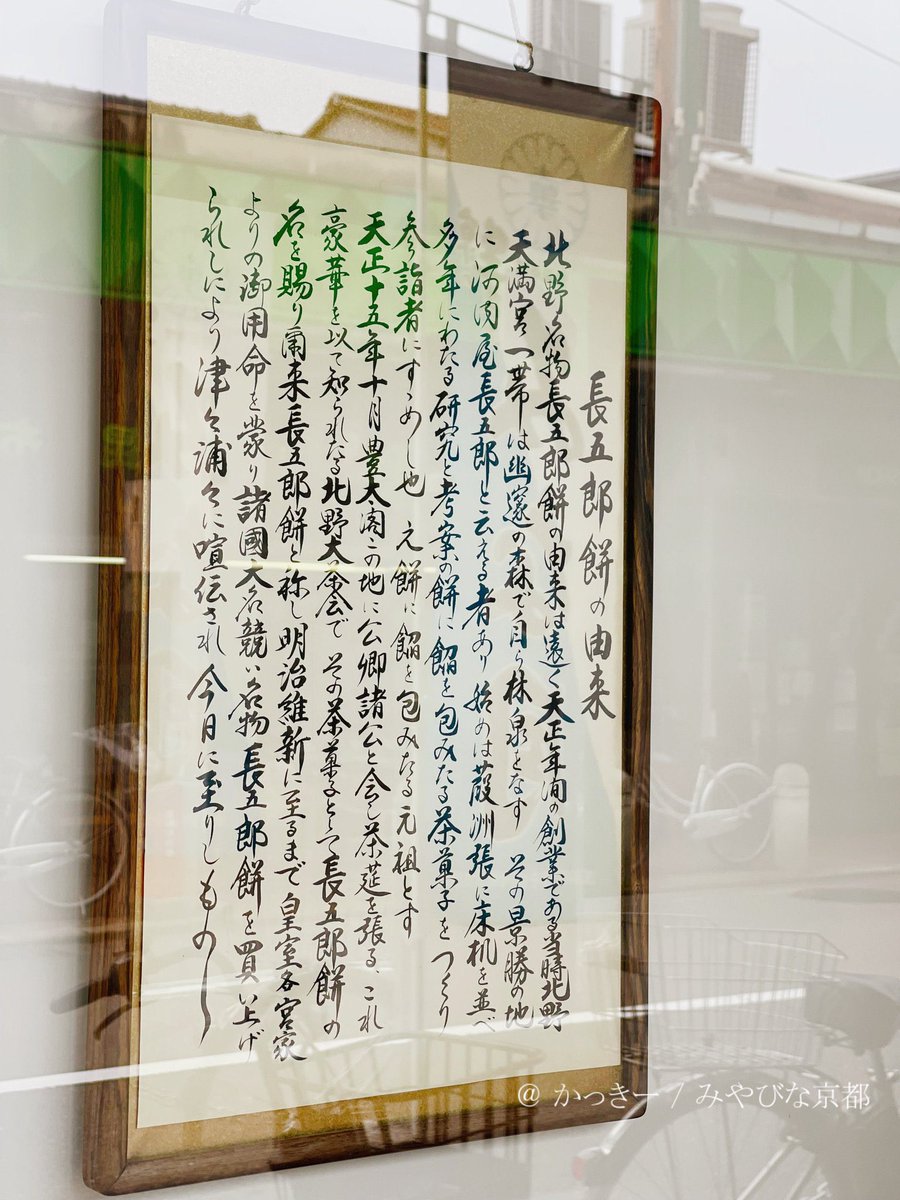 長五郎餅の由来
北野名物長五郎餅の由来は遠く天正年间の創業である当時北野
天満宮一帯は幽邃の森で自ら林泉をなす その景勝の地
に河内屋長五郎と云える者あり 始めは葭洲張に床机を並べ
多年にわたる研究と考案の餅に餡を包みたる茶菓子をつくり
参詣者にすゝめし也 之餅に餡を包みたる元祖とす
天正十五年十月豊太閤この地に公卿諸公と会し茶莚を張る、これ
豪華を以て知られたる北野大茶会で その茶菓子として長五郎餅の
名を賜り爾来長五郎餅と称し明治維新に至るまで皇室各宮家
よりの御用命を蒙り諸國大名競い名物長五郎餅を買い上げ
られしにより津々浦々に喧伝され今日に至りしもの
@ かっきー / みやびな京都